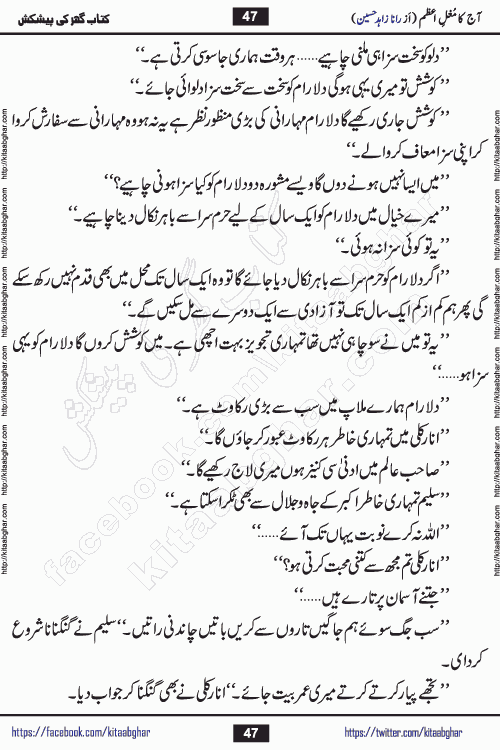 آج کا مُغلِ اعظم (از رانا زاہد حسین)
47
کتاب گھر کی پیشکش
’’دلو کو سخت سزا ہی ملنی چاہیے...... ہر وقت ہماری جاسوسی کرتی ہے۔‘‘
’’کوشش تو میری یہی ہوگی دلارام کو سخت سے سخت سزا دلوائی جائے۔‘‘
’’کوشش جاری رکھیے گا دلارام مہارانی کی بڑی منظور نظر ہے یہ نہ ہو وہ مہارانی سے سفارش کروا
کر اپنی سزا معاف کروا لے۔‘‘
’’میں ایسا نہیں ہونے دوں گا ویسے مشورہ دو دلارام کو کیا سزا ہونی چاہیے؟‘‘
’’میرے خیال میں دلارام کو ایک سال کے لیے حرم سرا سے باہر نکال دینا چاہیے۔‘‘
’’یہ تو کوئی سزا نہ ہوئی۔‘‘
’’اگر دلارام کو حرم سرا سے باہر نکال دیا جائے گا تو وہ ایک سال تک محل میں بھی قدم نہیں رکھ سکے
گی پھر ہم کم از کم ایک سال تک تو آزادی سے ایک دوسرے سے مل سکیں گے۔‘‘
’’یہ تو میں نے سوچا ہی نہیں تھا تمہاری تجویز بہت اچھی ہے۔ میں کوشش کروں گا دلارام کو یہی
سزا ہو......‘‘
’’دلارام ہمارے ملاپ میں سب سے بڑی رکاوٹ ہے۔‘‘
’’انارکلی میں تمہاری خاطر ہر رکاوٹ عبور کر جاؤں گا۔‘‘
’’صاحب عالم میں ادنیٰ سی کنیز ہوں میری لاج رکھیے گا۔‘‘
’’سلیم تمہاری خاطر اکبر کے جاہ و جلال سے بھی ٹکرا سکتا ہے۔‘‘
’’اللہ نہ کرے نوبت یہاں تک آئے......‘‘
’’انارکلی تم مجھ سے کتنی محبت کرتی ہو؟‘‘
’’جتنے آسمان پر تارے ہیں......‘‘
’’سب جگ سوئے ہم جاگیں تاروں سے کریں باتیں چاندنی راتیں۔‘‘ سلیم نے گنگنانا شروع
کر دی۔
’’تجھے پیار کرتے کرتے میری عمر بیت جائے۔‘‘ انارکلی نے بھی گنگنا کر جواب دیا۔
http://kitaabghar.com http://kitaabghar.com http://kitaabghar.com http://kitaabghar.com http://kitaabghar.com http://kitaabghar.com
http://kitaabghar.com http://kitaabghar.com http://kitaabghar.com http://kitaabghar.com http://kitaabghar.com http://kitaabghar.com
کتاب گھر کی پیشکش
kitaabghar.com
facebook.com/kitaabghar
https://facebook.com/kitaabghar
47
https://twitter.com/kitaabghar